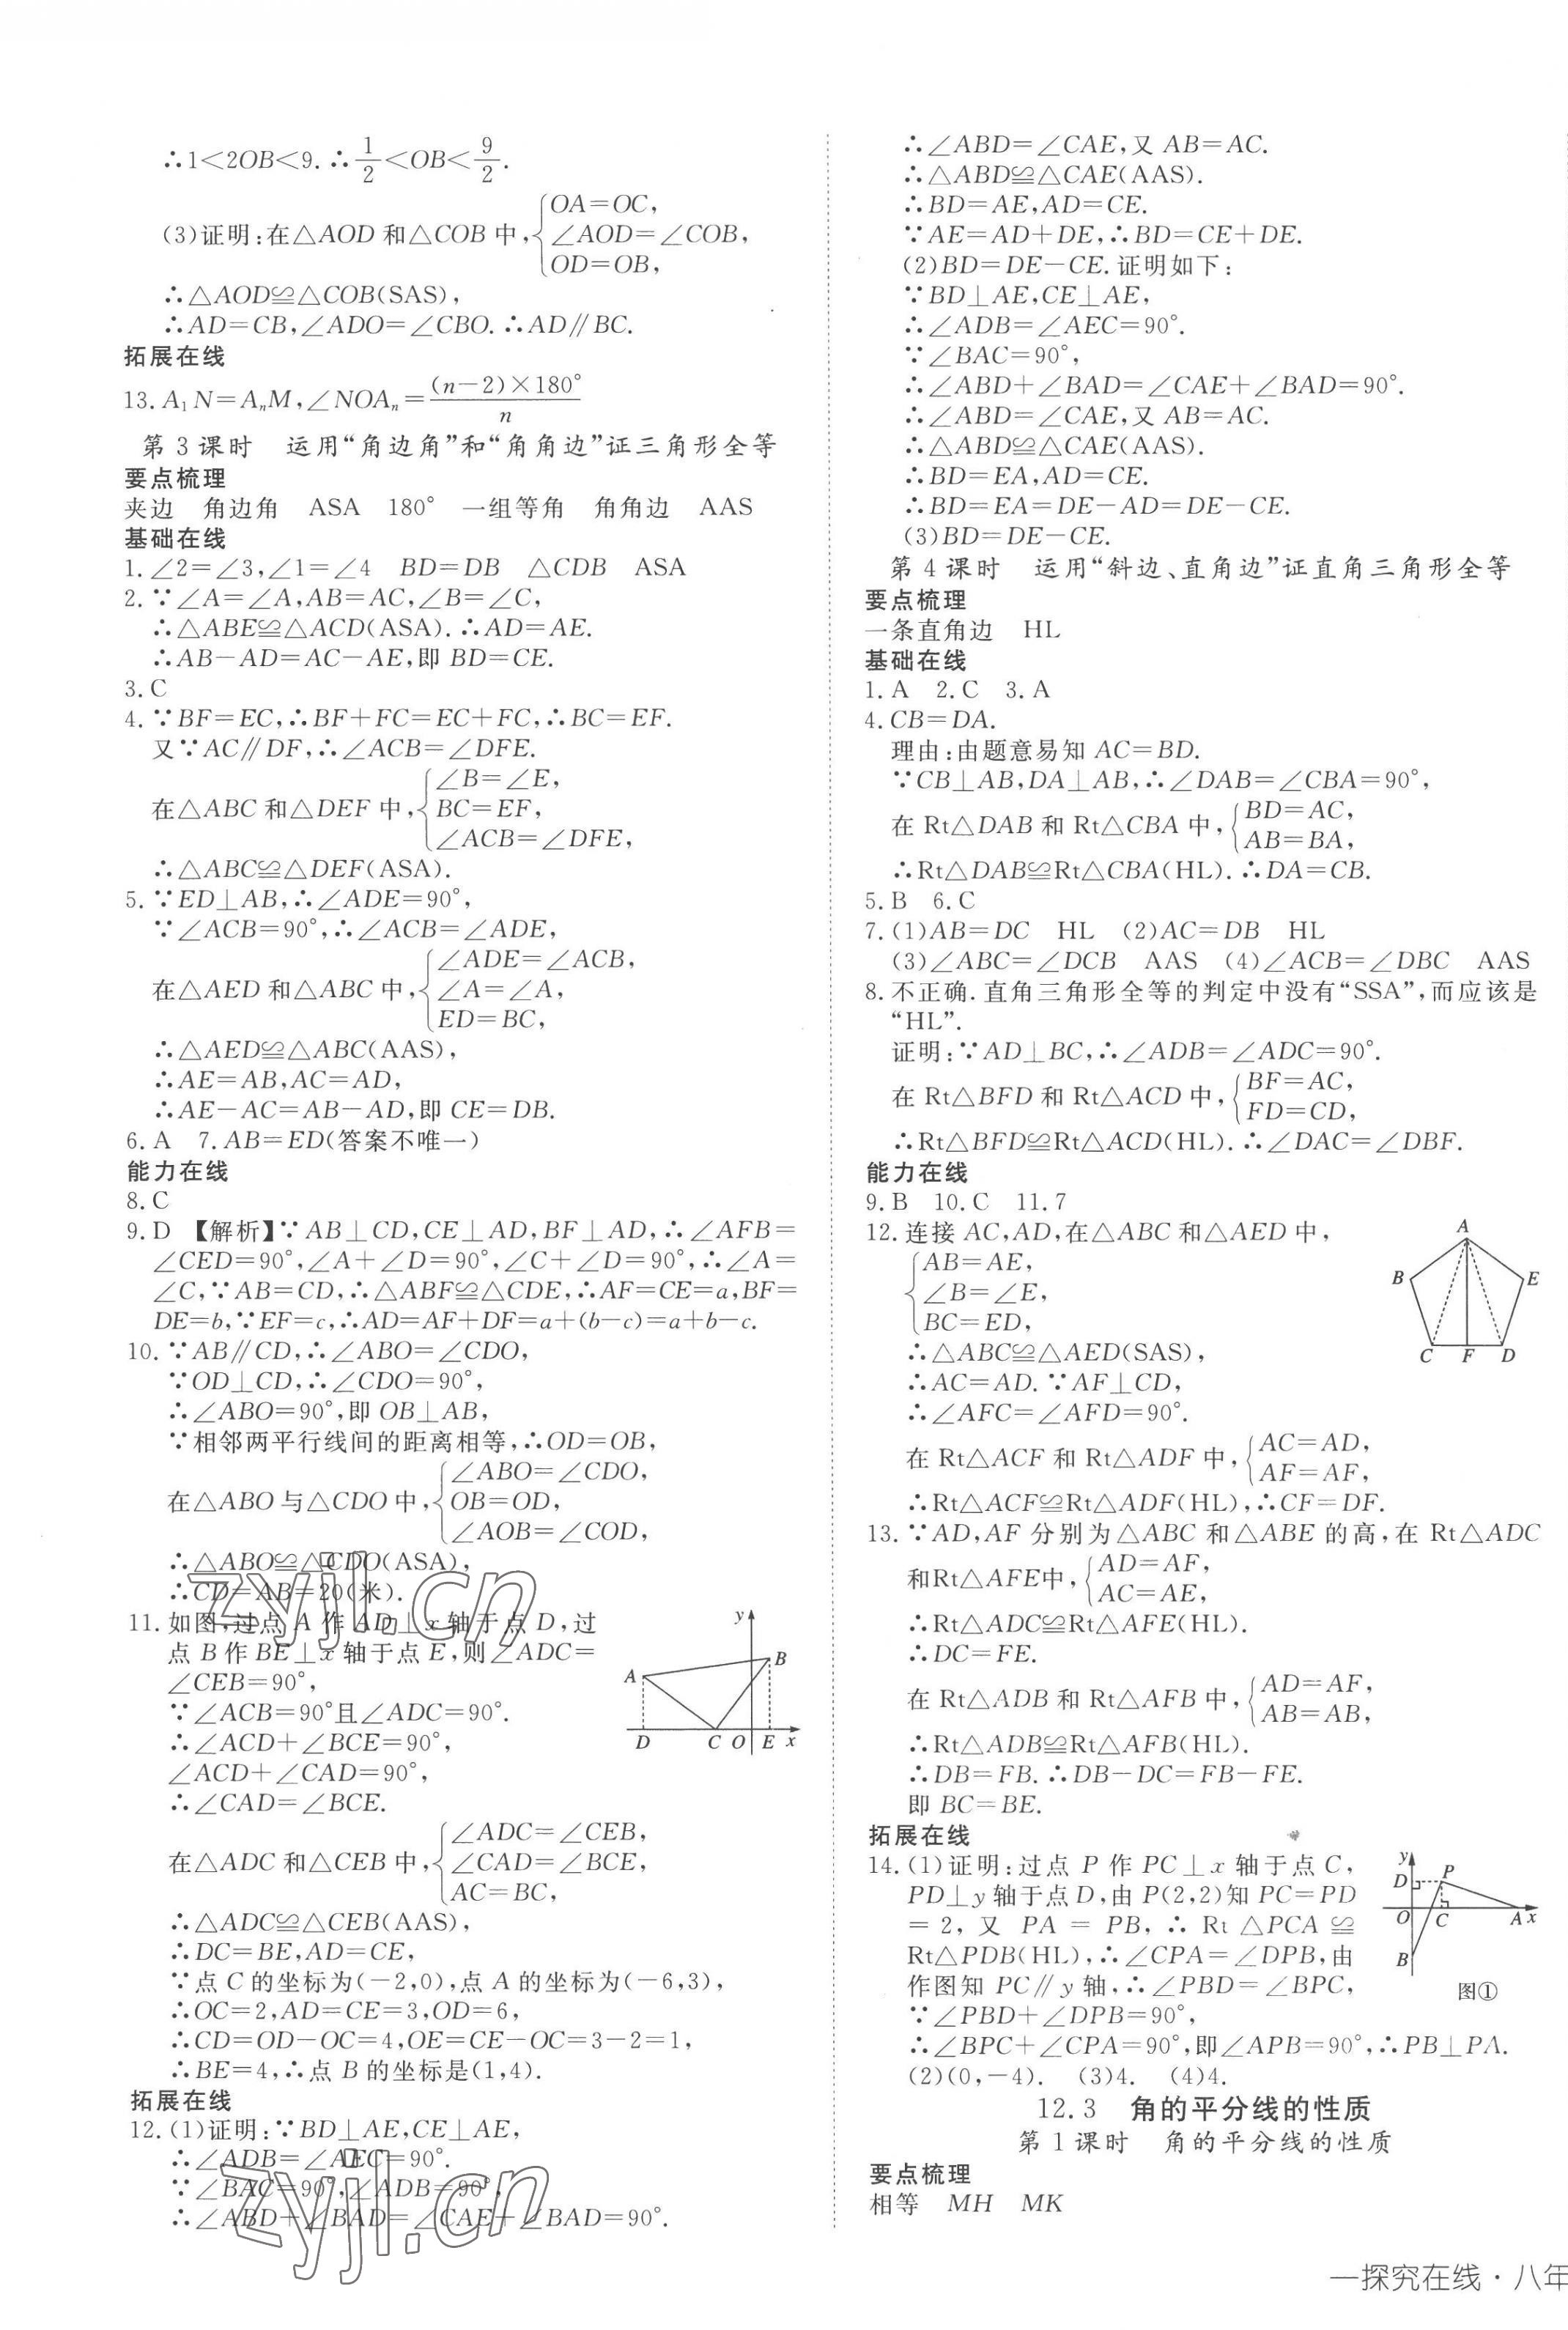 ∴1<2OB<9.∴1/2<OB<9/2.
(3)证明:在△AOD和△COB中,{OA=OC,
∠AOD=∠COB,
OD=OB,
∴△AOD≌△COB(SAS),
∴AD=CB,∠ADO=∠CBO.∴AD∥BC.
拓展在线
13.A₁N=AₙM,∠NOAₙ=(n-2)×180°/n
第3课时 运用“角边角”和“角角边”证三角形全等
要点梳理
夹边 角边角 ASA 180° 一组等角 角角边 AAS
基础在线
1.∠2=∠3,∠1=∠4 BD=DB △CDB ASA
2.∵∠A=∠A,AB=AC,∠B=∠C,
∴△ABE≌△ACD(ASA).∴AD=AE.
∴AB-AD=AC-AE,即BD=CE.
3.C
4.∵BF=EC,∴BF+FC=EC+FC,∴BC=EF.
又∵AC∥DF,∴∠ACB=∠DFE.
在△ABC和△DEF中,{∠B=∠E,
BC=EF,
∠ACB=∠DFE,
∴△ABC≌△DEF(ASA).
5.∵ED⊥AB,∴∠ADE=90°,
∵∠ACB=90°,∴∠ACB=∠ADE,
在△AED和△ABC中,{∠ADE=∠ACB,
∠A=∠A,
ED=BC,
∴△AED≌△ABC(AAS),
∴AE=AB,AC=AD,
∴AE-AC=AB-AD,即CE=DB.
6.A 7.AB=ED(答案不唯一)
能力在线
8.C
9.D 【解析】∵AB⊥CD,CE⊥AD,BF⊥AD,∴∠AFB=
∠CED=90°,∠A+∠D=90°,∠C+∠D=90°,∴∠A=
∠C,∵AB=CD,∴△ABF≌△CDE,∴AF=CE=a,BF=
DE=b,∵EF=c,∴AD=AF+DF=a+(b-c)=a+b-c.
10.∵AB∥CD,∴∠ABO=∠CDO,
∵OD⊥CD,∴∠CDO=90°,
∴∠ABO=90°,即OB⊥AB,
∵相邻两平行线间的距离相等,∴OD=OB,
在△ABO与△CDO中,{∠ABO=∠CDO,
OB=OD,
∠AOB=∠COD,
∴△ABO≌△CDO(ASA),
∴CD=AB=20(米).
11.如图,过点A作AD⊥x轴于点D,过
点B作BE⊥x轴于点E,则∠ADC=
∠CEB=90°,
∵∠ACB=90°且∠ADC=90°.
∴∠ACD+∠BCE=90°,
∠ACD+∠CAD=90°,
∴∠CAD=∠BCE.
y
B
A
D C O E x
在△ADC和△CEB中,{∠ADC=∠CEB,
∠CAD=∠BCE,
AC=BC,
∴△ADC≌△CEB(AAS),
∴DC=BE,AD=CE,
∵点C的坐标为(-2,0),点A的坐标为(-6,3),
∴OC=2,AD=CE=3,OD=6,
∴CD=OD-OC=4,OE=CE-OC=3-2=1,
∴BE=4,∴点B的坐标是(1,4).
拓展在线
12.(1)证明:∵BD⊥AE,CE⊥AE,
∴∠ADB=∠AEC=90°.
∵∠BAC=90°,∠ADB=90°,
∴∠ABD+∠BAD=∠CAE+∠BAD=90°.
zyjl.cn
zyjl.cn
∴∠ABD=∠CAE,又AB=AC.
∴△ABD≌△CAE(AAS).
∴BD=AE,AD=CE.
∵AE=AD+DE,∴BD=CE+DE.
(2)BD=DE-CE.证明如下:
∵BD⊥AE,CE⊥AE,
∴∠ADB=∠AEC=90°.
∵∠BAC=90°,
∴∠ABD+∠BAD=∠CAE+∠BAD=90°.
∴∠ABD=∠CAE,又AB=AC.
∴△ABD≌△CAE(AAS).
∴BD=EA,AD=CE.
∴BD=EA=DE-AD=DE-CE.
(3)BD=DE-CE.
第4课时 运用“斜边、直角边”证直角三角形全等
要点梳理
一条直角边 HL
基础在线
1.A 2.C 3.A
4.CB=DA.
理由:由题意易知AC=BD.
∵CB⊥AB,DA⊥AB,∴∠DAB=∠CBA=90°,
在Rt△DAB和Rt△CBA中,{BD=AC,
AB=BA,
∴Rt△DAB≌Rt△CBA(HL).∴DA=CB.
5.B 6.C
7.(1)AB=DC HL (2)AC=DB HL
(3)∠ABC=∠DCB AAS (4)∠ACB=∠DBC AAS
8.不正确.直角三角形全等的判定中没有“SSA”,而应该是
“HL”.
证明:∵AD⊥BC,∴∠ADB=∠ADC=90°.
在Rt△BFD和Rt△ACD中,{BF=AC,
FD=CD,
∴Rt△BFD≌Rt△ACD(HL).∴∠DAC=∠DBF.
能力在线
9.B 10.C 11.7
12.连接AC,AD,在△ABC和△AED中,
{AB=AE,
∠B=∠E,
BC=ED,
∴△ABC≌△AED(SAS),
∴AC=AD.∵AF⊥CD,
∴∠AFC=∠AFD=90°.
A
B E
C F D
在Rt△ACF和Rt△ADF中,{AC=AD,
AF=AF,
∴Rt△ACF≌Rt△ADF(HL),∴CF=DF.
13.∵AD,AF分别为△ABC和△ABE的高,在Rt△ADC
和Rt△AFE中,{AD=AF,
AC=AE,
∴Rt△ADC≌Rt△AFE(HL).
∴DC=FE.
在Rt△ADB和Rt△AFB中,{AD=AF,
AB=AB,
∴Rt△ADB≌Rt△AFB(HL).
∴DB=FB.∴DB-DC=FB-FE.
即BC=BE.
拓展在线
14.(1)证明:过点P作PC⊥x轴于点C,
PD⊥y轴于点D,由P(2,2)知PC=PD
=2,又PA=PB,∴Rt△PCA≌
Rt△PDB(HL),∴∠CPA=∠DPB,由
作图知PC∥y轴,∴∠PBD=∠BPC,
∵∠PBD+∠DPB=90°,
∴∠BPC+∠CPA=90°,即∠APB=90°,∴PB⊥PA.
(2)(0,-4). (3)4. (4)4.
y
D P
O C A x
B
图①
12.3 角的平分线的性质
第1课时 角的平分线的性质
要点梳理
相等 MH MK
一探究在线·八年